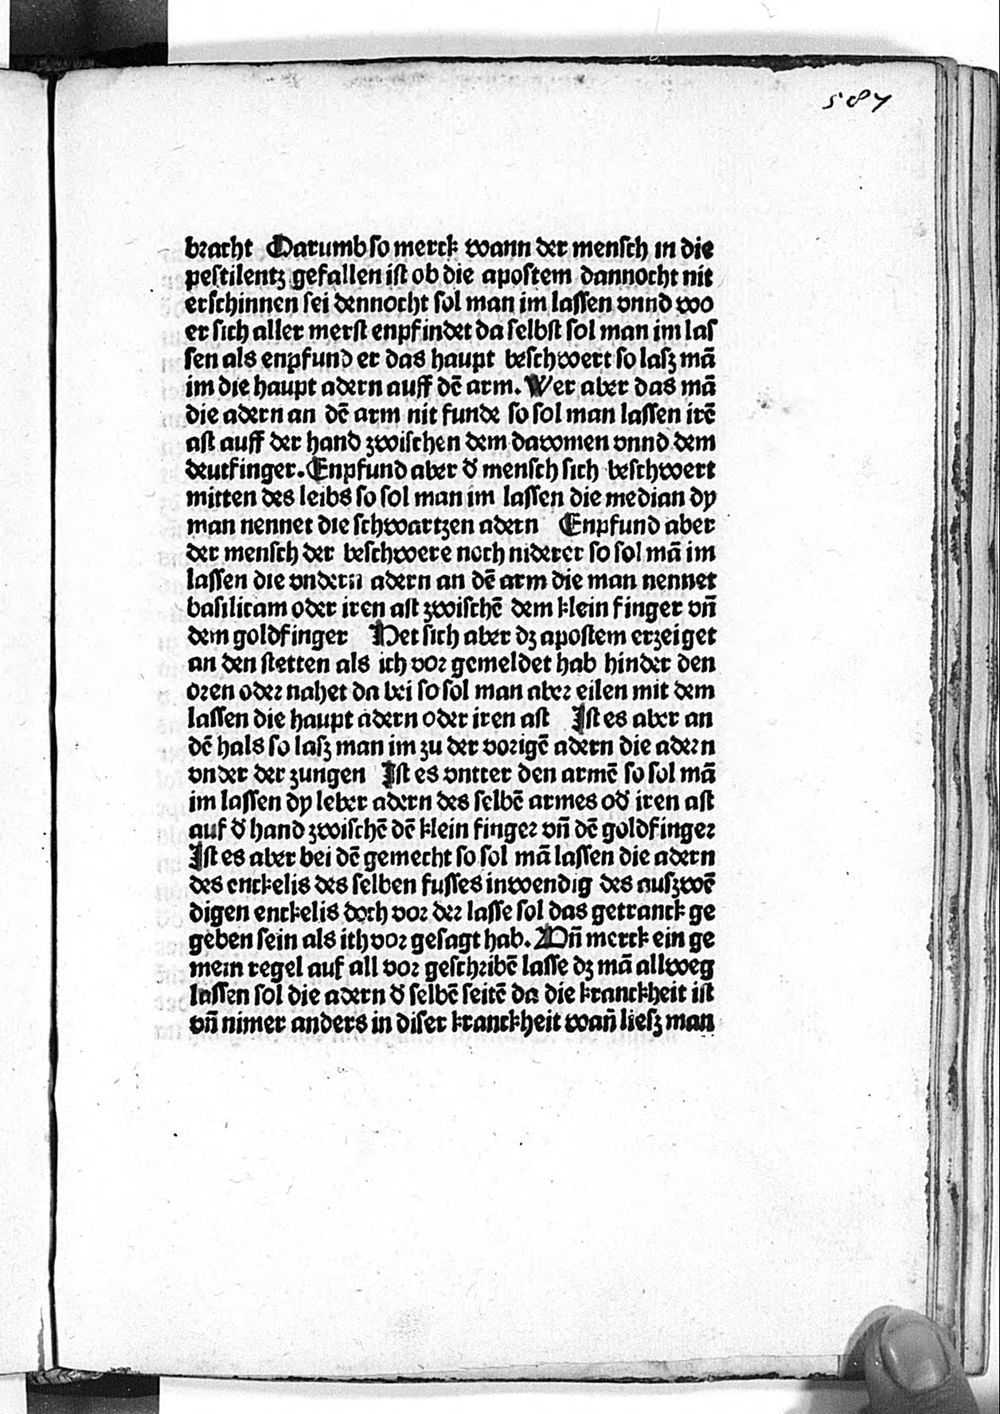 587
bracht Darumb so merck wann der mensch in die
pestilentz gefallen ist ob die apostem dannocht nit
erschinnen sei dennocht sol man im lassen vnnd wo
er sich aller merst enpfindet da selbst sol man im las
sen als enpfund er das haupt beschwert so lasz mā
im die haupt adern auff dē arm. Wer aber das mā
die adern an dē arm nit funde so sol man lassen irē
ast auff der hand zwischen dem dawmen vnnd dem
deutfinger. Enpfund aber d' mensch sich beschwert
mitten des leibs so sol man im lassen die median dy
man nennet die schwartzen adern Enpfund aber
der mensch der beschwere noch niderer so sol mā im
lassen die vndern adern an dē arm die man nennet
basilicam oder iren ast zwischē dem klein finger vn̄
dem goldfinger Het sich aber dz apostem erzeiget
an den stetten als ich vor gemeldet hab hinder den
oren oder nahet da bei so sol man aber eilen mit dem
lassen die haupt adern oder iren ast Ist es aber an
dē hals so lasz man im zu der vorigē adern die adern
vnder der zungen Ist es vntter den armē so sol mā
im lassen dy leber adern des selbē armes od' iren ast
auf d' hand zwischē dē klein finger vn̄ dē goldfinger
Ist es aber bei dē gemecht so sol mā lassen die adern
des enckelis des selben fusses inwendig des auszwē
digen enckelis doch vor der lasse sol das getranck ge
geben sein als ith vor gesagt hab. Vn̄ merck ein ge
mein regel auf all vor geschribē lasse dz mā allweg
lassen sol die adern d' selbē seitē da die kranckheit ist
vn̄ nimer anders in diser kranckheit wan̄ liesz man